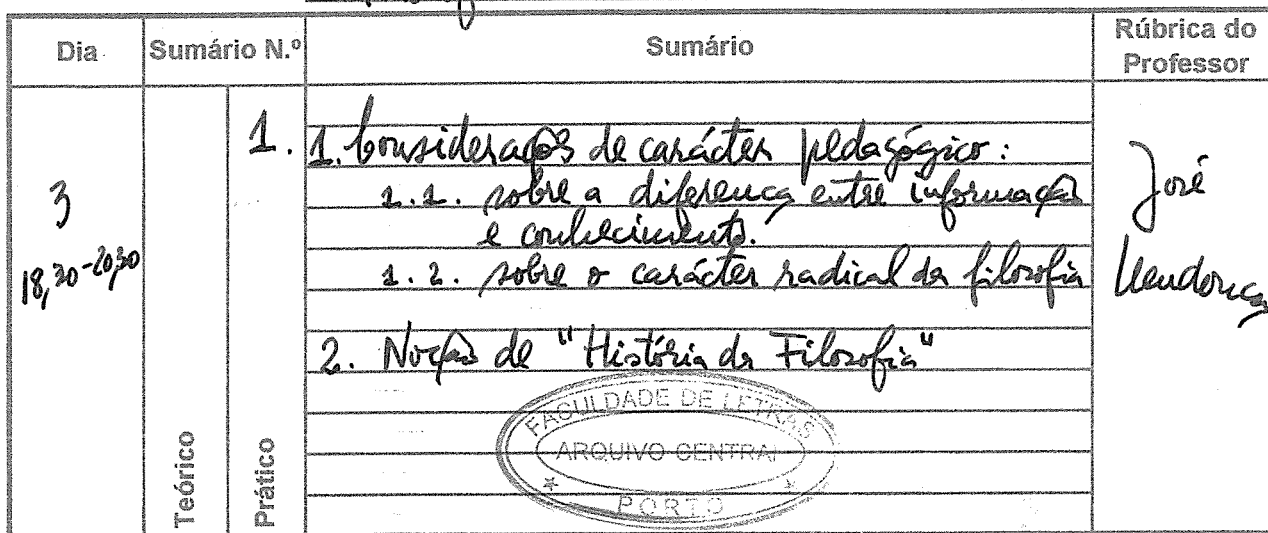 Dia Sumário N.º Sumário Rúbrica do Professor
3
18,30-20,30
1.
1. Considerações de carácter pedagógico:
1.1. sobre a diferença entre informação
e conhecimento.
1.2. sobre o carácter radical da filosofia
2. Noção de "História da Filosofia"
José
Mendonça
Teórico
Prático
FACULDADE DE LETRAS
ARQUIVO CENTRAL
PORTO